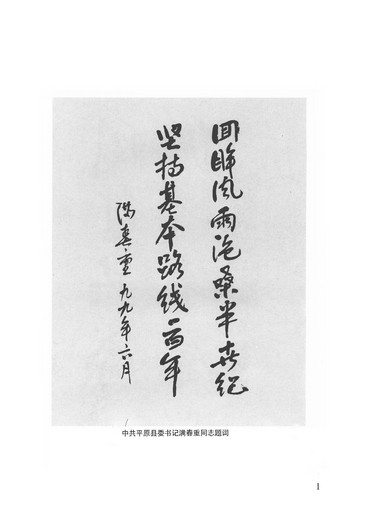 回眸风雨沧桑半世纪
坚持基本路线一百年
满春重 九九年六月
中共平原县委书记满春重同志题词
1